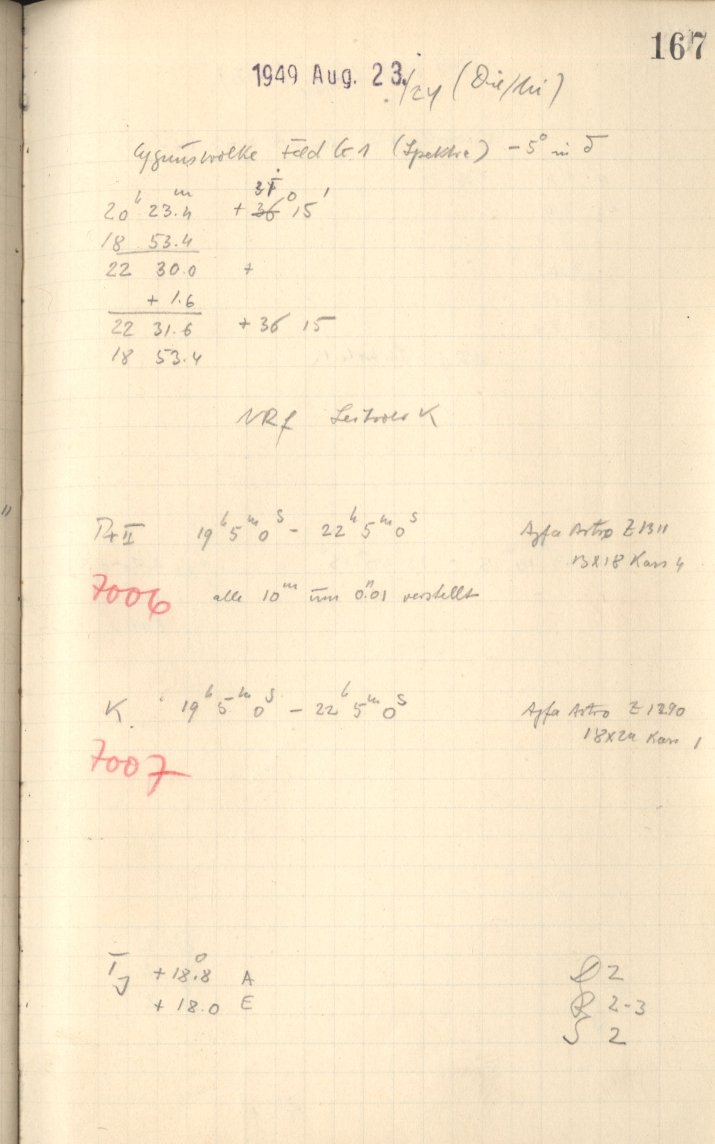 167
1949 Aug. 23./24
Cygnuswolke Feld (Spektra) -5° in δ
31
20ʰ 23.4ᵐ + 36° 15'
18 53.4
22 30.0 +
+ 1.6
22 31.6 + 36 15
18 53.4
K
II 19ʰ5ᵐ0ˢ - 22ʰ5ᵐ0ˢ Agfa Astro Z1311
13x18 Kass 4
7006 alle 10ᵐ um 0."01 verstellt
K 19ʰ5ᵐ0ˢ - 22ʰ5ᵐ0ˢ Agfa Astro Z1290
18x24 Kass 1
7007
T_J +18.°8 A
+18.0 E
D 2
R 2-3
S 2